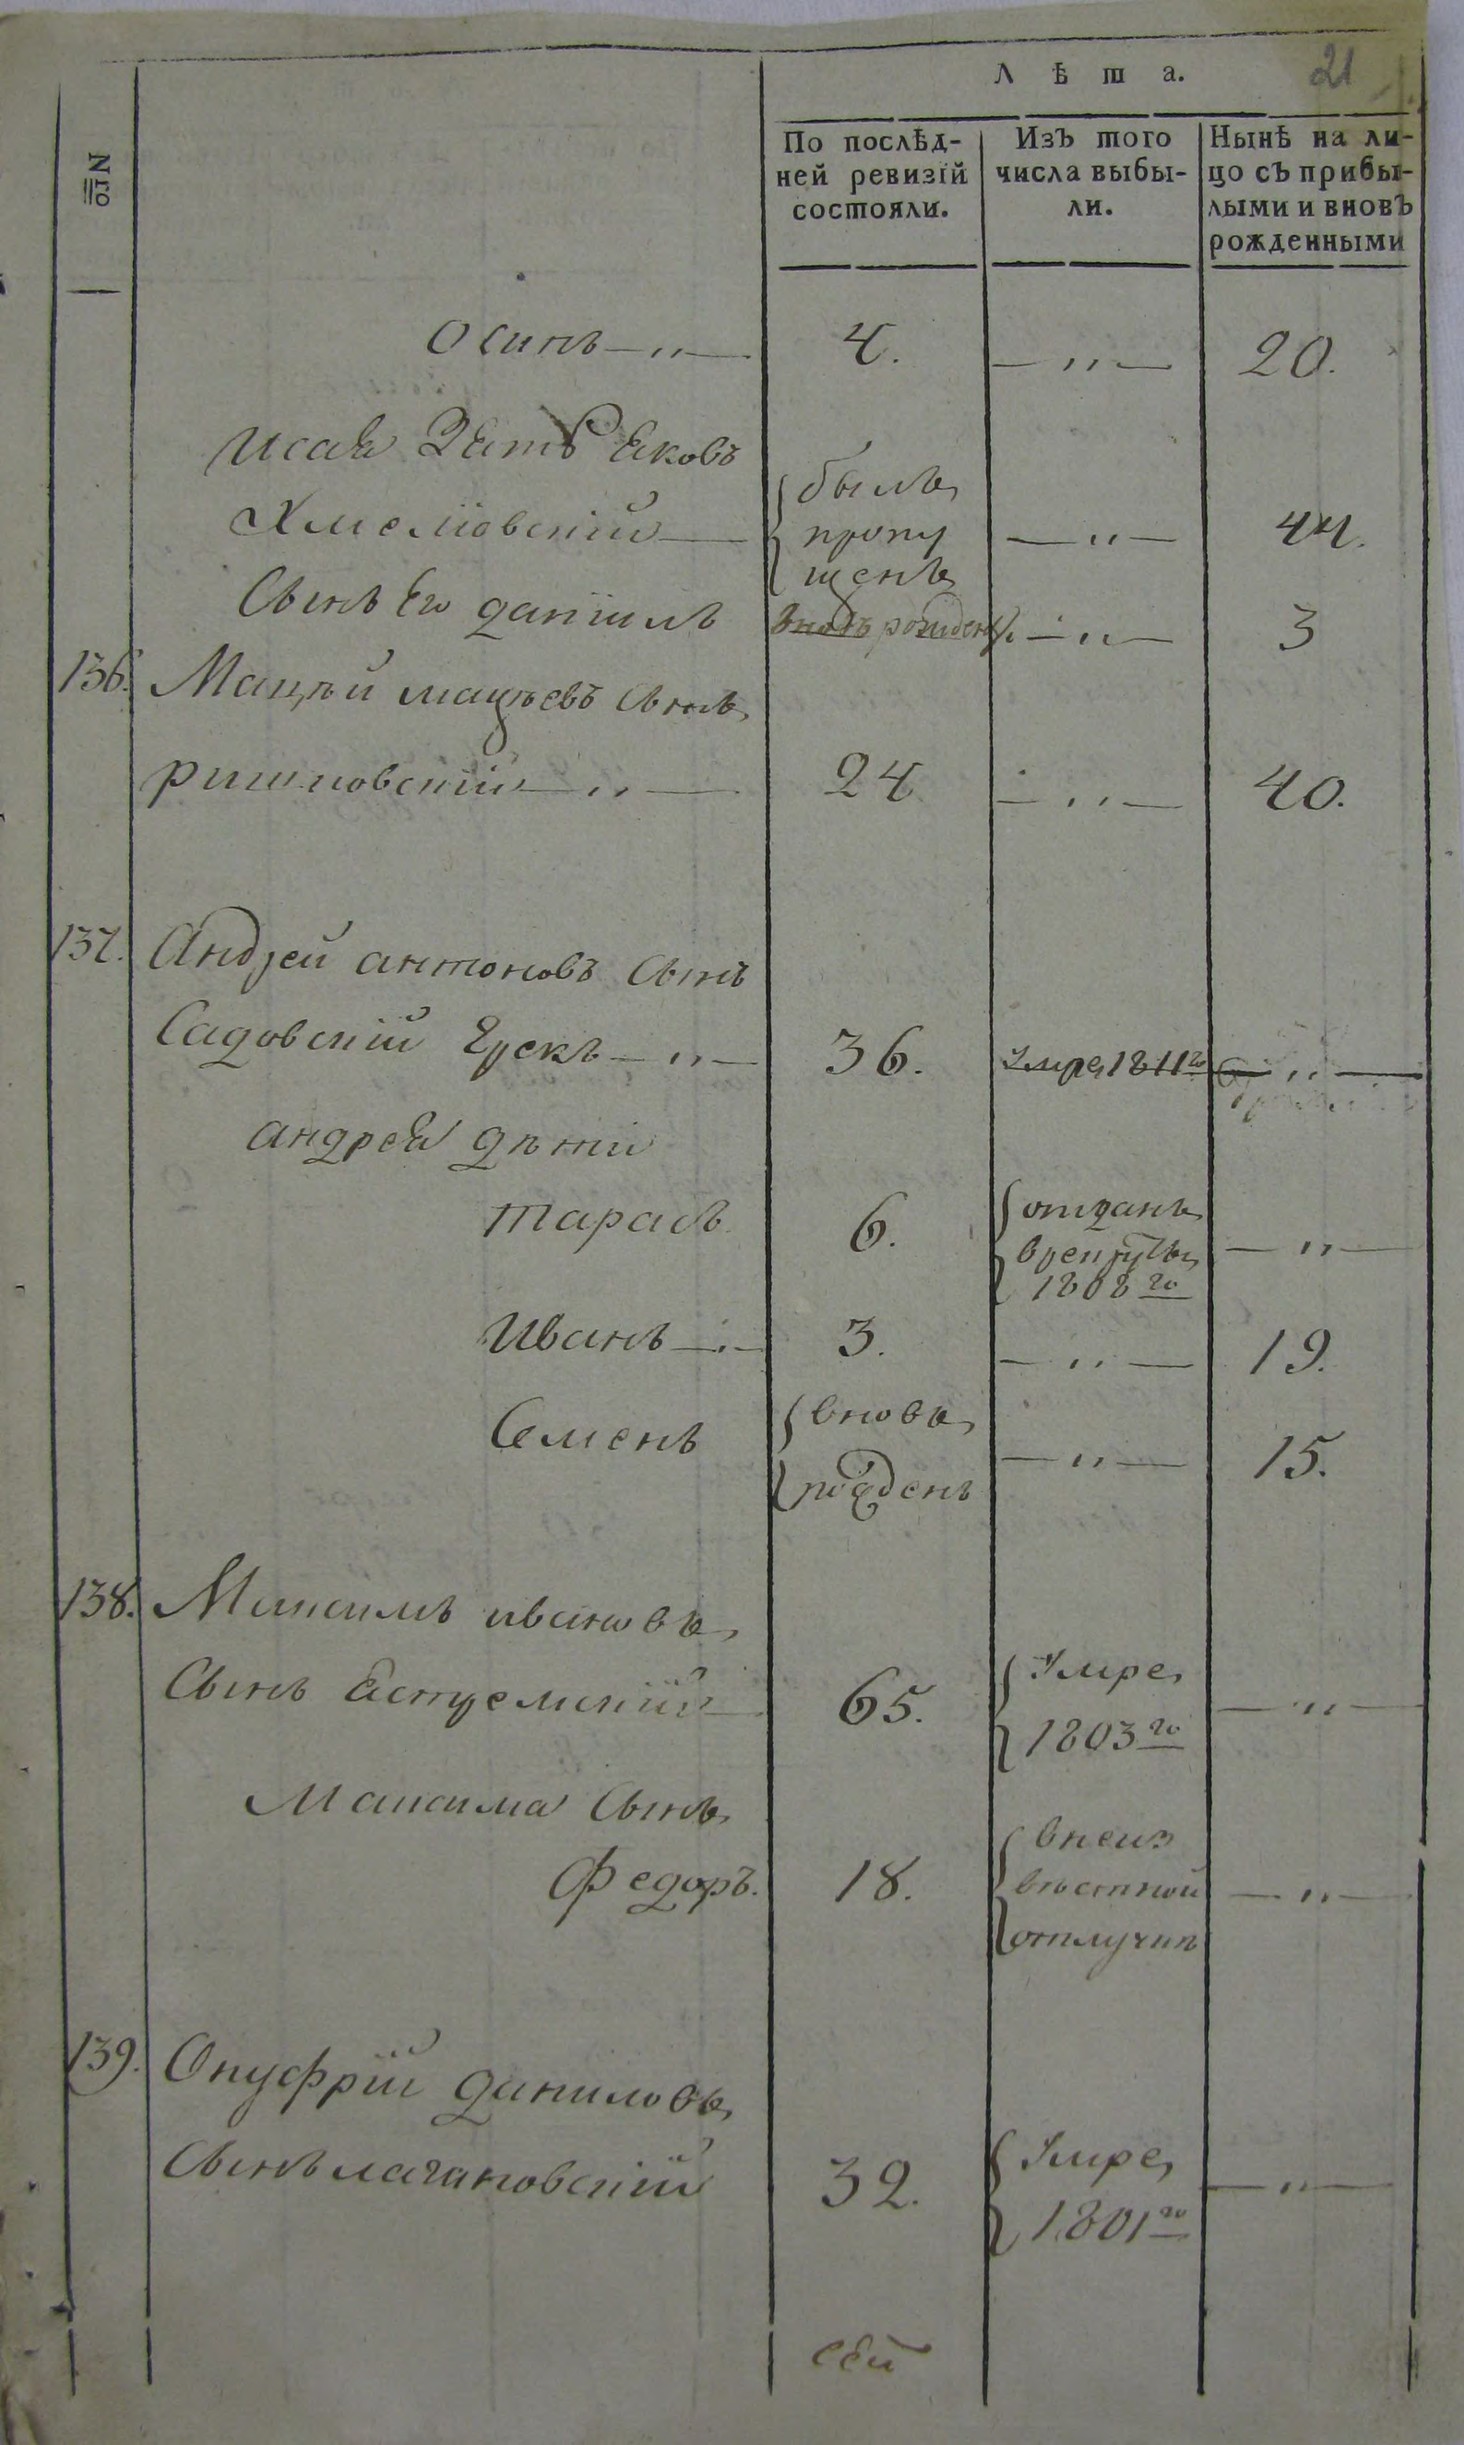 Лѣта. 21
№
По послѣд-
ней ревизiй
состояли.
Изъ того
числа выбы-
ли.
Нынѣ на ли-
цо съ прибы-
лыми и вновъ
рожденными
Осипъ — „ — 4. — „ — 20.
Исая Зять Яковъ
Хмелiовскiй —
былъ
пропу
щенъ
— „ — 44.
Сынъ Его данiилъ вновь рожденъ — „ — 3
136. Мацѣй мацѣевъ Сынъ
— „ — 24 — „ — 40.
137. Андрей антоновъ Сынъ
Садовскiй — „ — 36. Умре 1811го — „ —
андрея дѣтiи
тарасъ. 6.
отданъ
врекруты
1808го
— „ —
Иванъ — „ — 3. — „ — 19.
Семенъ
вновь
рожденъ
— „ — 15.
138. Максимъ ивановъ
Сынъ 65.
Умре
1803го
— „ —
Максима Сынъ
Федоръ. 18.
внеиз
вѣстной
отлучкѣ
— „ —
139. Онуфрiй даниловъ
Сынъ лагановскiй 32.
Умре
1801го
— „ —